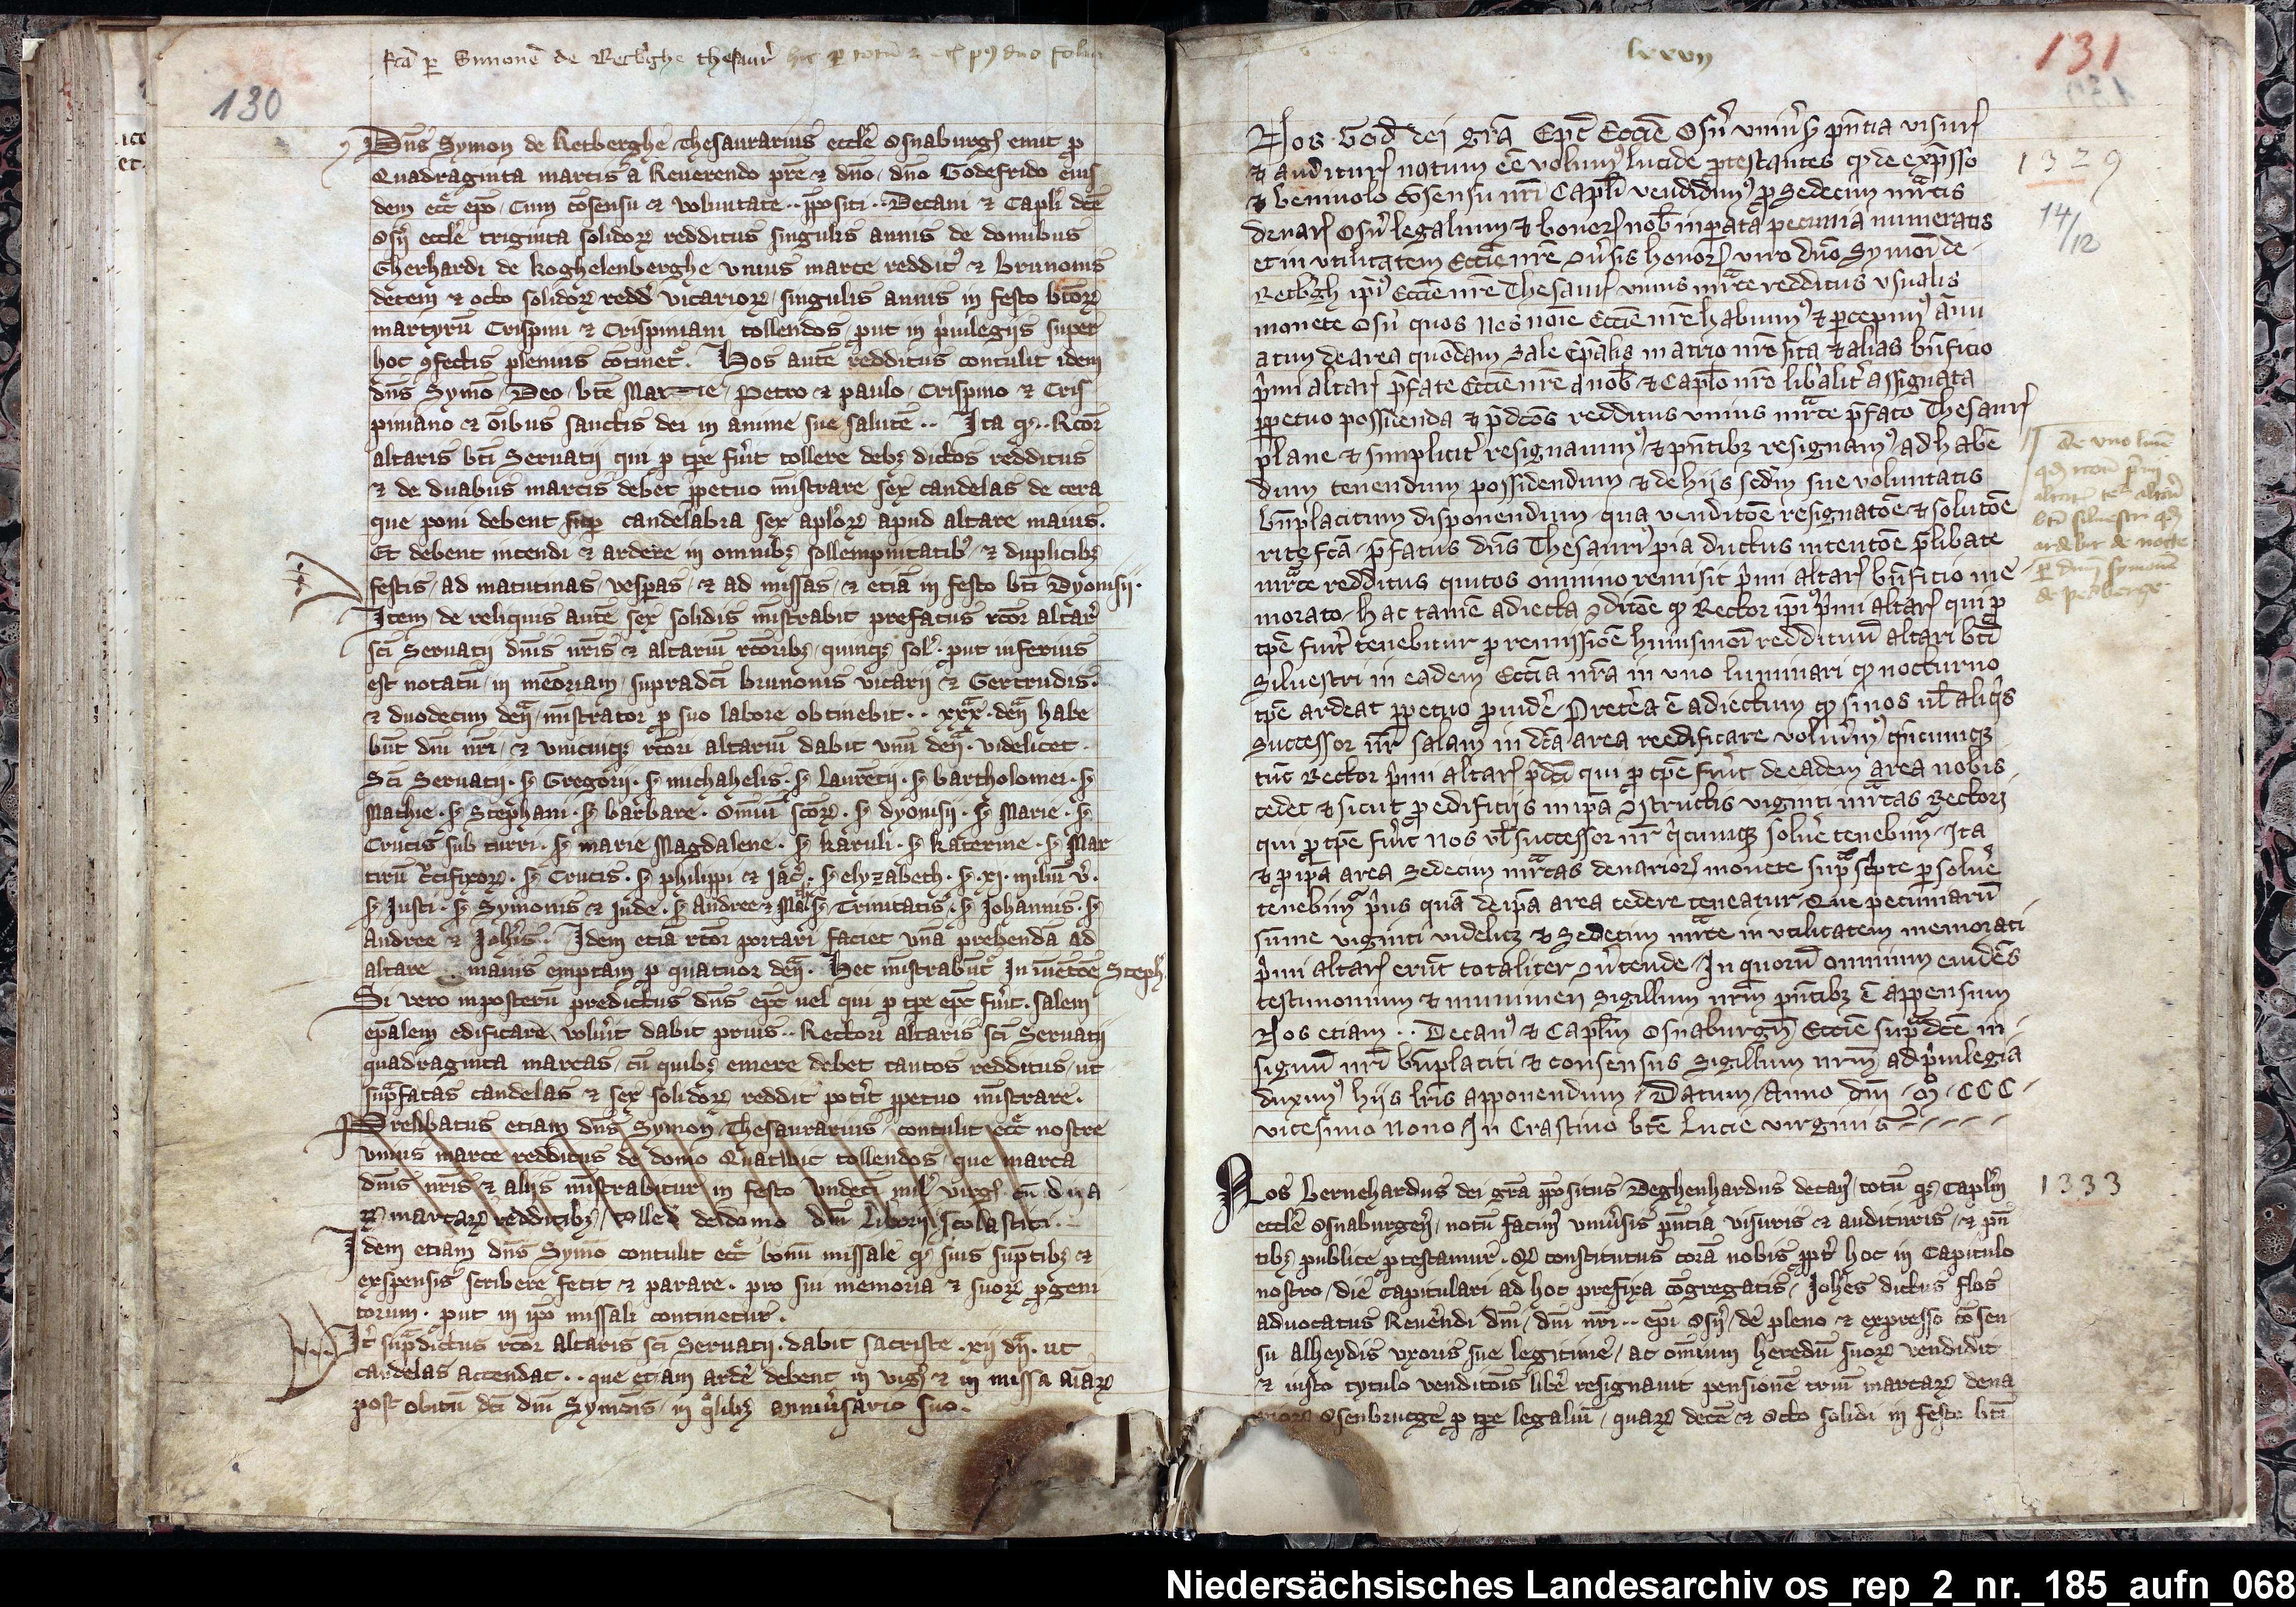 fca per Simonem de Retberghe thesaur hic per totum et post duo folia
130
Dns Symon de Retberghe Thesaurarius eccle Osnaburgh emit p
Quadraginta marcis a Reuerendo pre et dno, dno Godefrido eius
dem ecce epo, Cum consensu et voluntate .. ppositi .. Decani et Capli dce
Osn eccle triginta solidor redditus singulis annis de domibus
Gherhardi de Koghelenberghe vnius marce reddit et Brunonis
decem et octo solidor redd vicarior, singulis annis in festo btor
martyrum Crispini et Crispiniani tollendos, put in priuilegijs super
hoc confectis plenius continet. Hos autem redditus contulit idem
dns Symon, Deo, bte Marie, Petro et paulo, Crispino et Cris
piniano et oibus sanctis dei in anime sue salutem .. Ita q .. Rcor
altaris bti Seruatij qui p tpe fuit tollere debz dictos redditus
et de duabus marcis debet ppetuo mistrare sex candelas de cera
que poni debent sup candelabra sex aplor apud altare maius.
Et debent incendi et ardere in omnibz sollempnitatibz, et duplicibz
festis, ad matutinas, vesperas, et ad missas, et etiam in festo bti Dyonisij.
Item de reliquis autem sex solidis mistrabit prefatus rcor altar
sci Seruatij dnis nris et altarium rcoribz, quinqz sol. put inferius
est notatum, in memoriam, supradci brunonis vicarij et Gertrudis.
et duodecim den mistrator p suo labore obtinebit .. xxx. den habe
bunt dni nri, et vnicuiqz rcori altarium dabit vnum den. videlicet.
Sci Seruatij. s Gregorij. s michahelis. s Laurecij. s bartholomei. s
Mathie. s Stephani. s barbare. Omium scor. s dyonisij. s Marie. s
Crucis sub turri. s marie Magdalene. s karuli. s katerine. s Mar
tirum Crucifixor. s Crucis. s philippi et Jac. s elyzabeth. s xj. milium v.
s Justi. s Symonis et Jude. s andree et Mat. s Trinitatis. s Johannis. s
andree et Johis. Idem etiam rcor portari faciet vna prebendam ad
altare . maius emptam p quatuor den. Hec mistrabunt In inuecoe Steph
Si vero inposterum predictus dns epc uel qui p tpe epc fuit. salem
epalem edificare voluit dabit prius .. Rectori altaris sci Seruatij
quadraginta marcas, cum quibz emere debet tantos redditus, ut
supfatas candelas et sex solidor reddit potit ppetuo mistrare.
Prelibatus etiam dns Symon Thesaurarius contulit ecce nostre
vnius marce redditus de domo tollendos, que marca
dnis nris et alijs mistrabitur in festo vndeci mil virg cum dua
r marcar redditibz, tolled de domo dni Liborij scolastici.
Idem etiam dns Symon contulit ecce bonum missale q suis suptibz et
expensis scribere fecit et parare. pro sui memoria et suor pgeni
torum. put in ipo missali continetur.
It supdictus rcor altaris sci Seruatij. dabit sacriste. xij dn. ut
candelas accendat .. que etiam arde debent in vigl et in missa aiar
post obitum dci dni Symois, in qlibz anniuersario suo.
lxxvij
131
Nos. God dei gra Epc Eccie Osn vniuis pntia visur
et auditur notum ee volum lucide ptestantes q de expsso
et beniuolo cosensu nri Capli vendidim p Sedecim mrcis
denar Osn legalium et bonor nob inparata pecunia numeratis
et in vtilitatem Eccie nre consis honor viro dno Symoi de
Retbgh ipi Eccie nre Thesaur vnius mrce redditus vsualis
monete Osn quos Nos noie Eccie nre habuim et pcepim annu
atim de area quondam Sale Epalis in atrio nro sita et alias bnficio
pmi altar pfate Eccie nre a nob et Caplo nro libalit assignata
ppetuo possidenda et pdcos redditus vnius mrce pfato Thesaur
plane et simplicit resignauim et pntibz resignam, ad haben
dum tenendum possidendum et de hijs scdm sue voluntatis
bnplacitum disponendum, qua venditoe resignatoe et solutoe
rite fca, pfatus dns Thesaur pia ductus intentoe plibate
mrce redditus quitos omnino remisit pmi altar bnficio me
morato, hac tamen adiecta condicoe q Rector ipi pmi altar qui p
tpe fuit tenebitur p remissioe huiusmoi reddituum altari bti
Siluestri in eadem Eccia nra in vno luminari q nocturno
tpe ardeat ppetuo puide. Pretea e adiectum q si nos ul aliqs
Successor nr salam in dca area reedificare voluim, qncumqz
tunc Rector pmi altar pdci qui p tpe fuit de eadem area nobis
cedet et sicut p edificijs in ipa constructis viginti mrcas Rectori
qui p tpe fuit nos ul successor nr qcumqz solue tenebim, Ita
et p ipa area Sedecim mrcas denarior monete supscpte psolue
tenebim, pus quam de ipa area cedere teneatur, Que pecuniarum
summe viginti videlicz et Sedecim mrce in vtilitatem memorati
pmi altar erunt totaliter conutende, In quorum omnium euidens
testimonium et munimen Sigillum nrm pntibz e appensum
Nos etiam .. Decan et Caplm Osnaburgn Eccie supdce in
signum nri bnplaciti et consensus Sigillum nrm ad priuilegia
duxim hijs lris apponendum. Datum, Anno dni. M. CCC
vicesimo Nono, In Crastino bte Lucie virginis
1329
14/12
De vno lumine
altar bti siluestri qd
ardebit de nocte
p dnm symonem
de retberge
1333
Nos Bernehardus dei gra ppositus Deghenhardus decan, totum qz Caplm
eccle Osnaburgen, notum facim vniuisis pntia visuris et audituris, et pn
tibz publice ptestamur. Q constitutus coram nobis ppt hoc in Capitulo
nostro, die Capitulari ad hoc prefixa congregatis, Johes dictus flos
aduocatus Reuerendi dni, dni nri .. epi Osn, de pleno et expresso consen
su alheydis vxoris sue legitime, ac omnium heredum suor vendidit
et iusto tytulo venditois libe resignauit pensionem trium marcar dena
rior Osenbrucge p tpe legalium, quar decem et Octo solidi in festo bti
Niedersächsisches Landesarchiv os_rep_2_nr._185_aufn_068